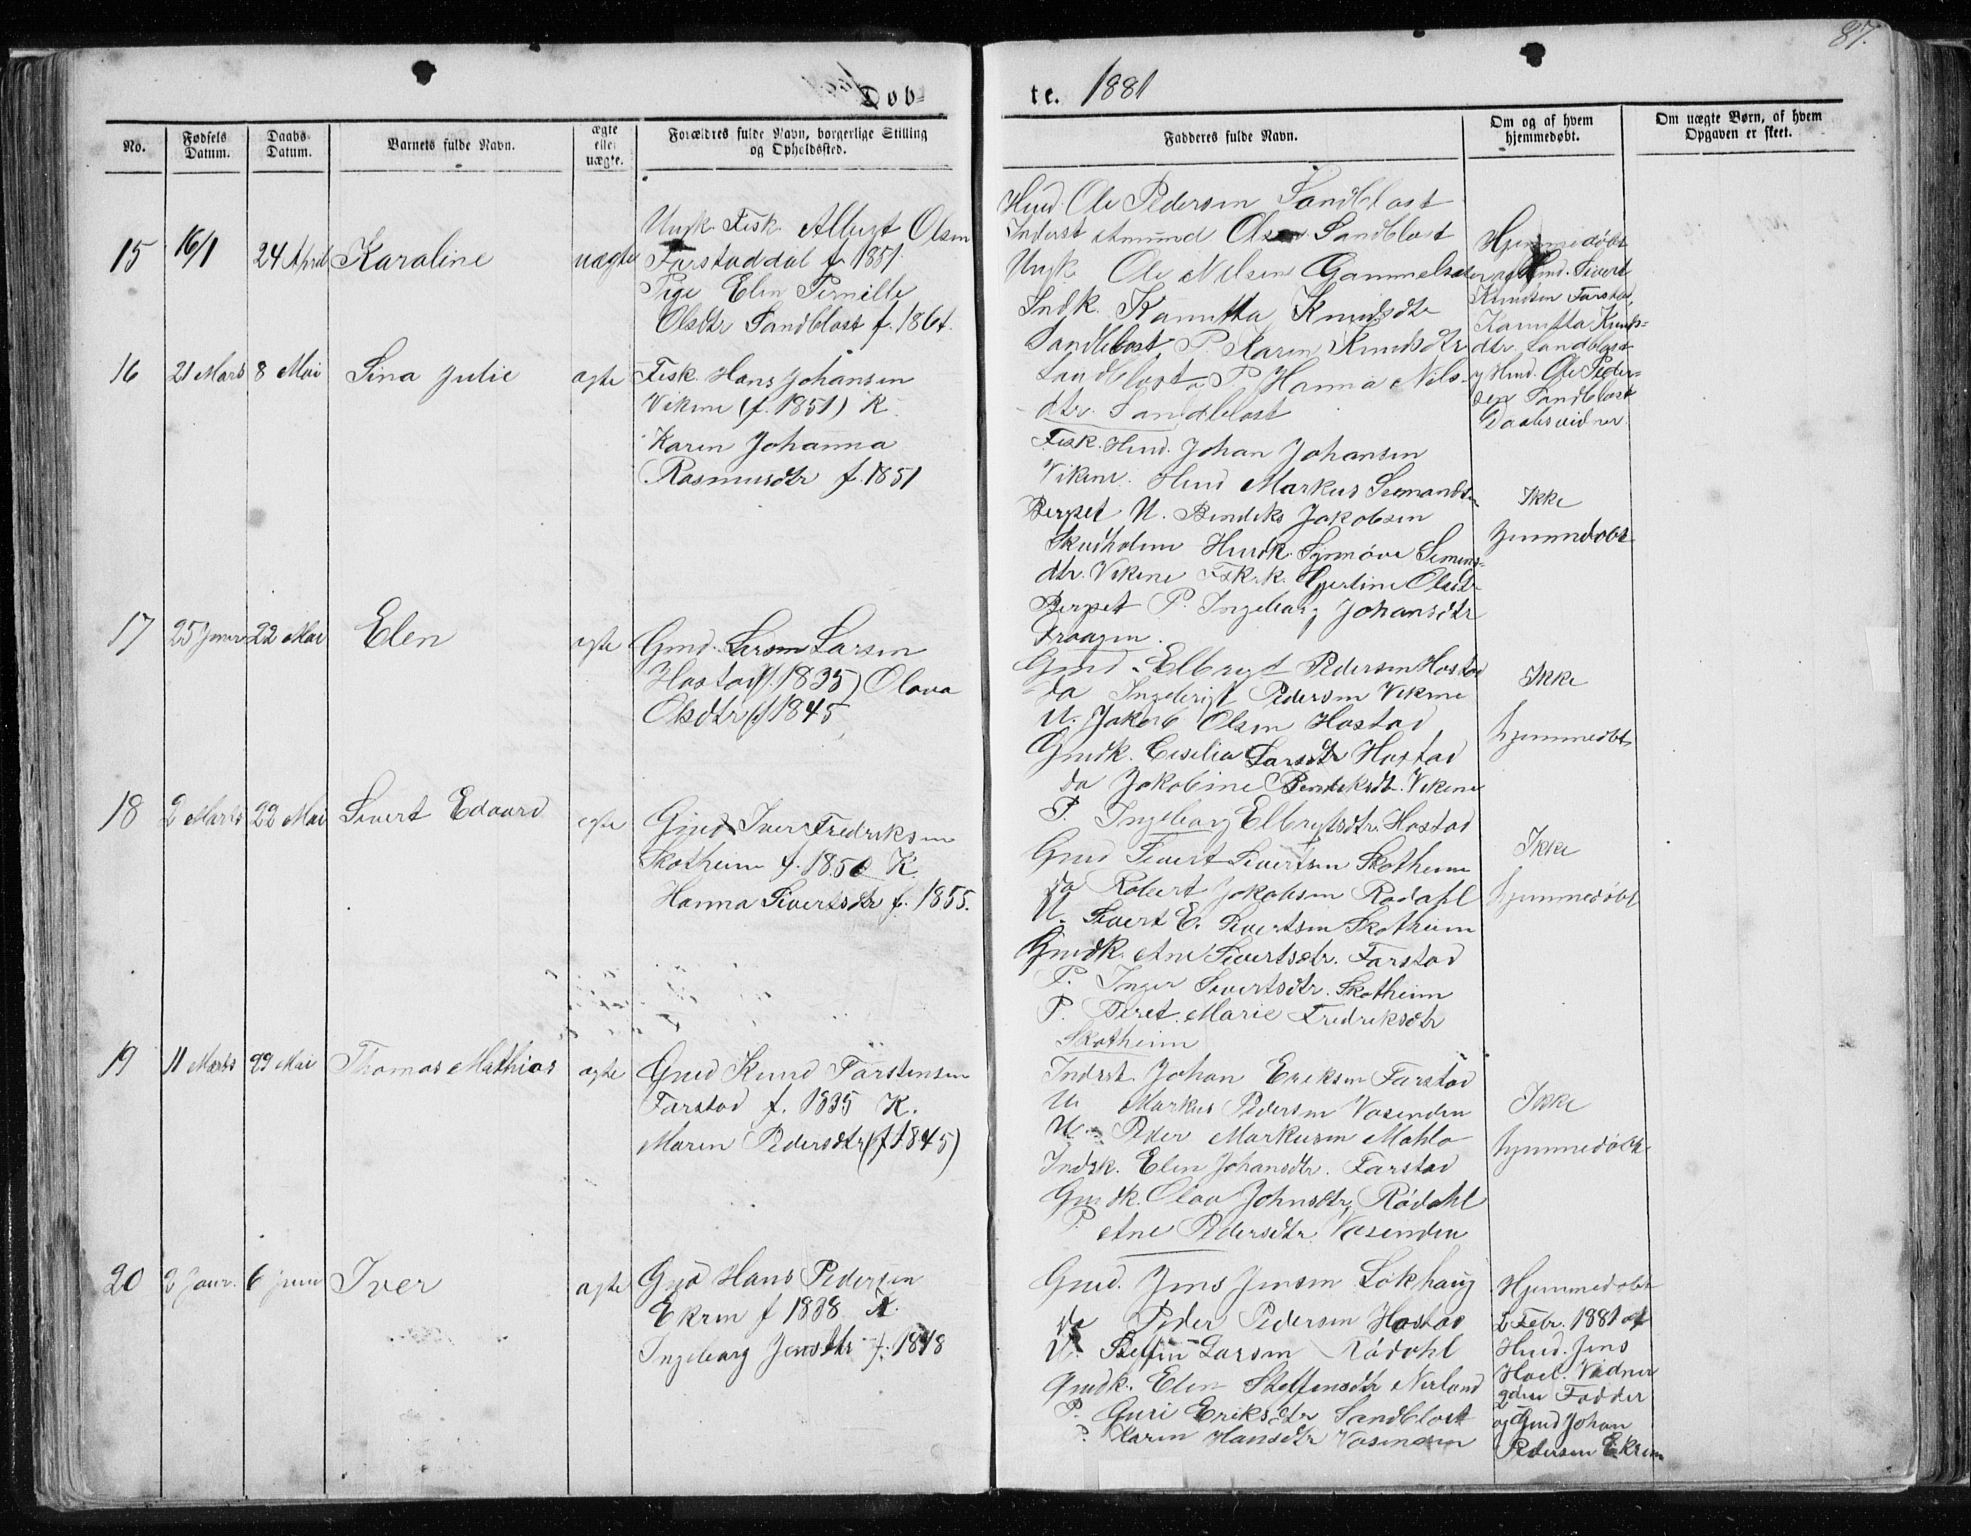 87.
Døb-
te. 1881
No.
Fødsels Datum.
Daabs- Datum.
Barnets fulde Navn.
ægte eller uægte.
Forældres fulde Navn, borgerlige Stilling og Opholdssted.
Fadderes fulde Navn.
Om og af hvem hjemmedøbt.
Om uægte Børn, af hvem Opgaven er skeet.
15 16/1 24 April Karoline uægte
Ungk. Fisk. Albert Olsen
Farstaddal f. 1851
Pige Elen Pernille
Olsdtr Sandblost f. 1861.
Husd. Ole Pedersen Sandblost
Inderst Amund Olsen Sandblost
Ungk. Ole Nilsen Gammelsæter
Indk. Kanutta Knudsdtr
Sandblost P. Karen Knudsdtr
Sandblost P Hanna Nils-
dtr. Sandblost
Hjemmedøbt
af Husd. Sivert
Knudsen Farstad
Kanutta Knuds-
dtr. Sandblost
og Husd. Ole Peder-
sen Sandblost
Daabsvidner
16 21 Marts 8 Mai Sina Julie ægte
Fisk. Hans Johansen
Vikene (f. 1851) K.
Karen Johanna
Rasmusdtr f. 1851
Fisk. Husd. Johan Johansen
Vikene. Husd Markus
Berset U. Bendiks Jakobsen
Skudholm Husdk. Synnøve Simens-
dtr. Vikene Fisk.k. Gjertine Olsdtr
Berset P. Ingeborg Johansdtr
Ikke
hjemmedøbt
17 25 Januar 22 Mai Elen ægte
Gmd. Larsen
Hostad (f. 1835) Olava
Olsdtr (f 1845
Gmd Elbrygt Pedersen Hostad
do Ingebrigt Pedersen Vikene
U. Jakob Olsen Hostad
Gmdk. Cecilia Larsdtr Hostad
do Jakobine Bendiksdtr. Vikene
P. Ingeborg Elbrygtsdtr. Hostad
Ikke
hjemmedøbt
18 2 Marts 22 Mai Sivert Edvard ægte
Gmd Iver Fredriksen
Skotheim f. 1850 K.
Hanna Sivertsdtr f. 1855.
Gmd Sivert Sivertsen Skotheim
do Robert Jakobsen Rødahl
U. Sivert E. Sivertsen Skotheim
Gmdk. Ane Sivertsdtr. Farstad
P. Inger Sivertsdtr. Skotheim
P. Beret Marie Fredriksdtr
Skotheim
Ikke
hjemmedøbt
19 11 Marts 29 Mai Thomas Mathias ægte
Gmd Knud Tarstensen
Farstad f. 1835 K.
Maren Pedersdtr (f 1845)
Inderst Johan Eriksen Farstad
U. Markus Pedersen Vasenden
U. Peder Markusen Mahlo
Indk. Elen Johansdtr. Farstad
Gmdk. Olava Johnsdtr Rødahl
P. Ane Pedersdtr Vasenden
Ikke
hjemmedøbt
20 2 Januar. 6 Juni Iver ægte
Gmd Hans Pedersen
Ekren f 1838 K.
Ingeborg Jensdtr f. 1848
Gmd. Jens Jensen Løkhaug
do Peder Pedersen Hostad
U. Steffen Larsen Rødahl
Gmdk. Elen Steffensdtr Nerland
P. Guri Eriksdtr Sandblost
P. Karen Hansdtr Vasenden
Hjemmedøbt
2 Febr. 1881 af
Husd. Jens
Hoel. Vidner
2den Fadder
og Gmd Johan
Pedersen Ekren